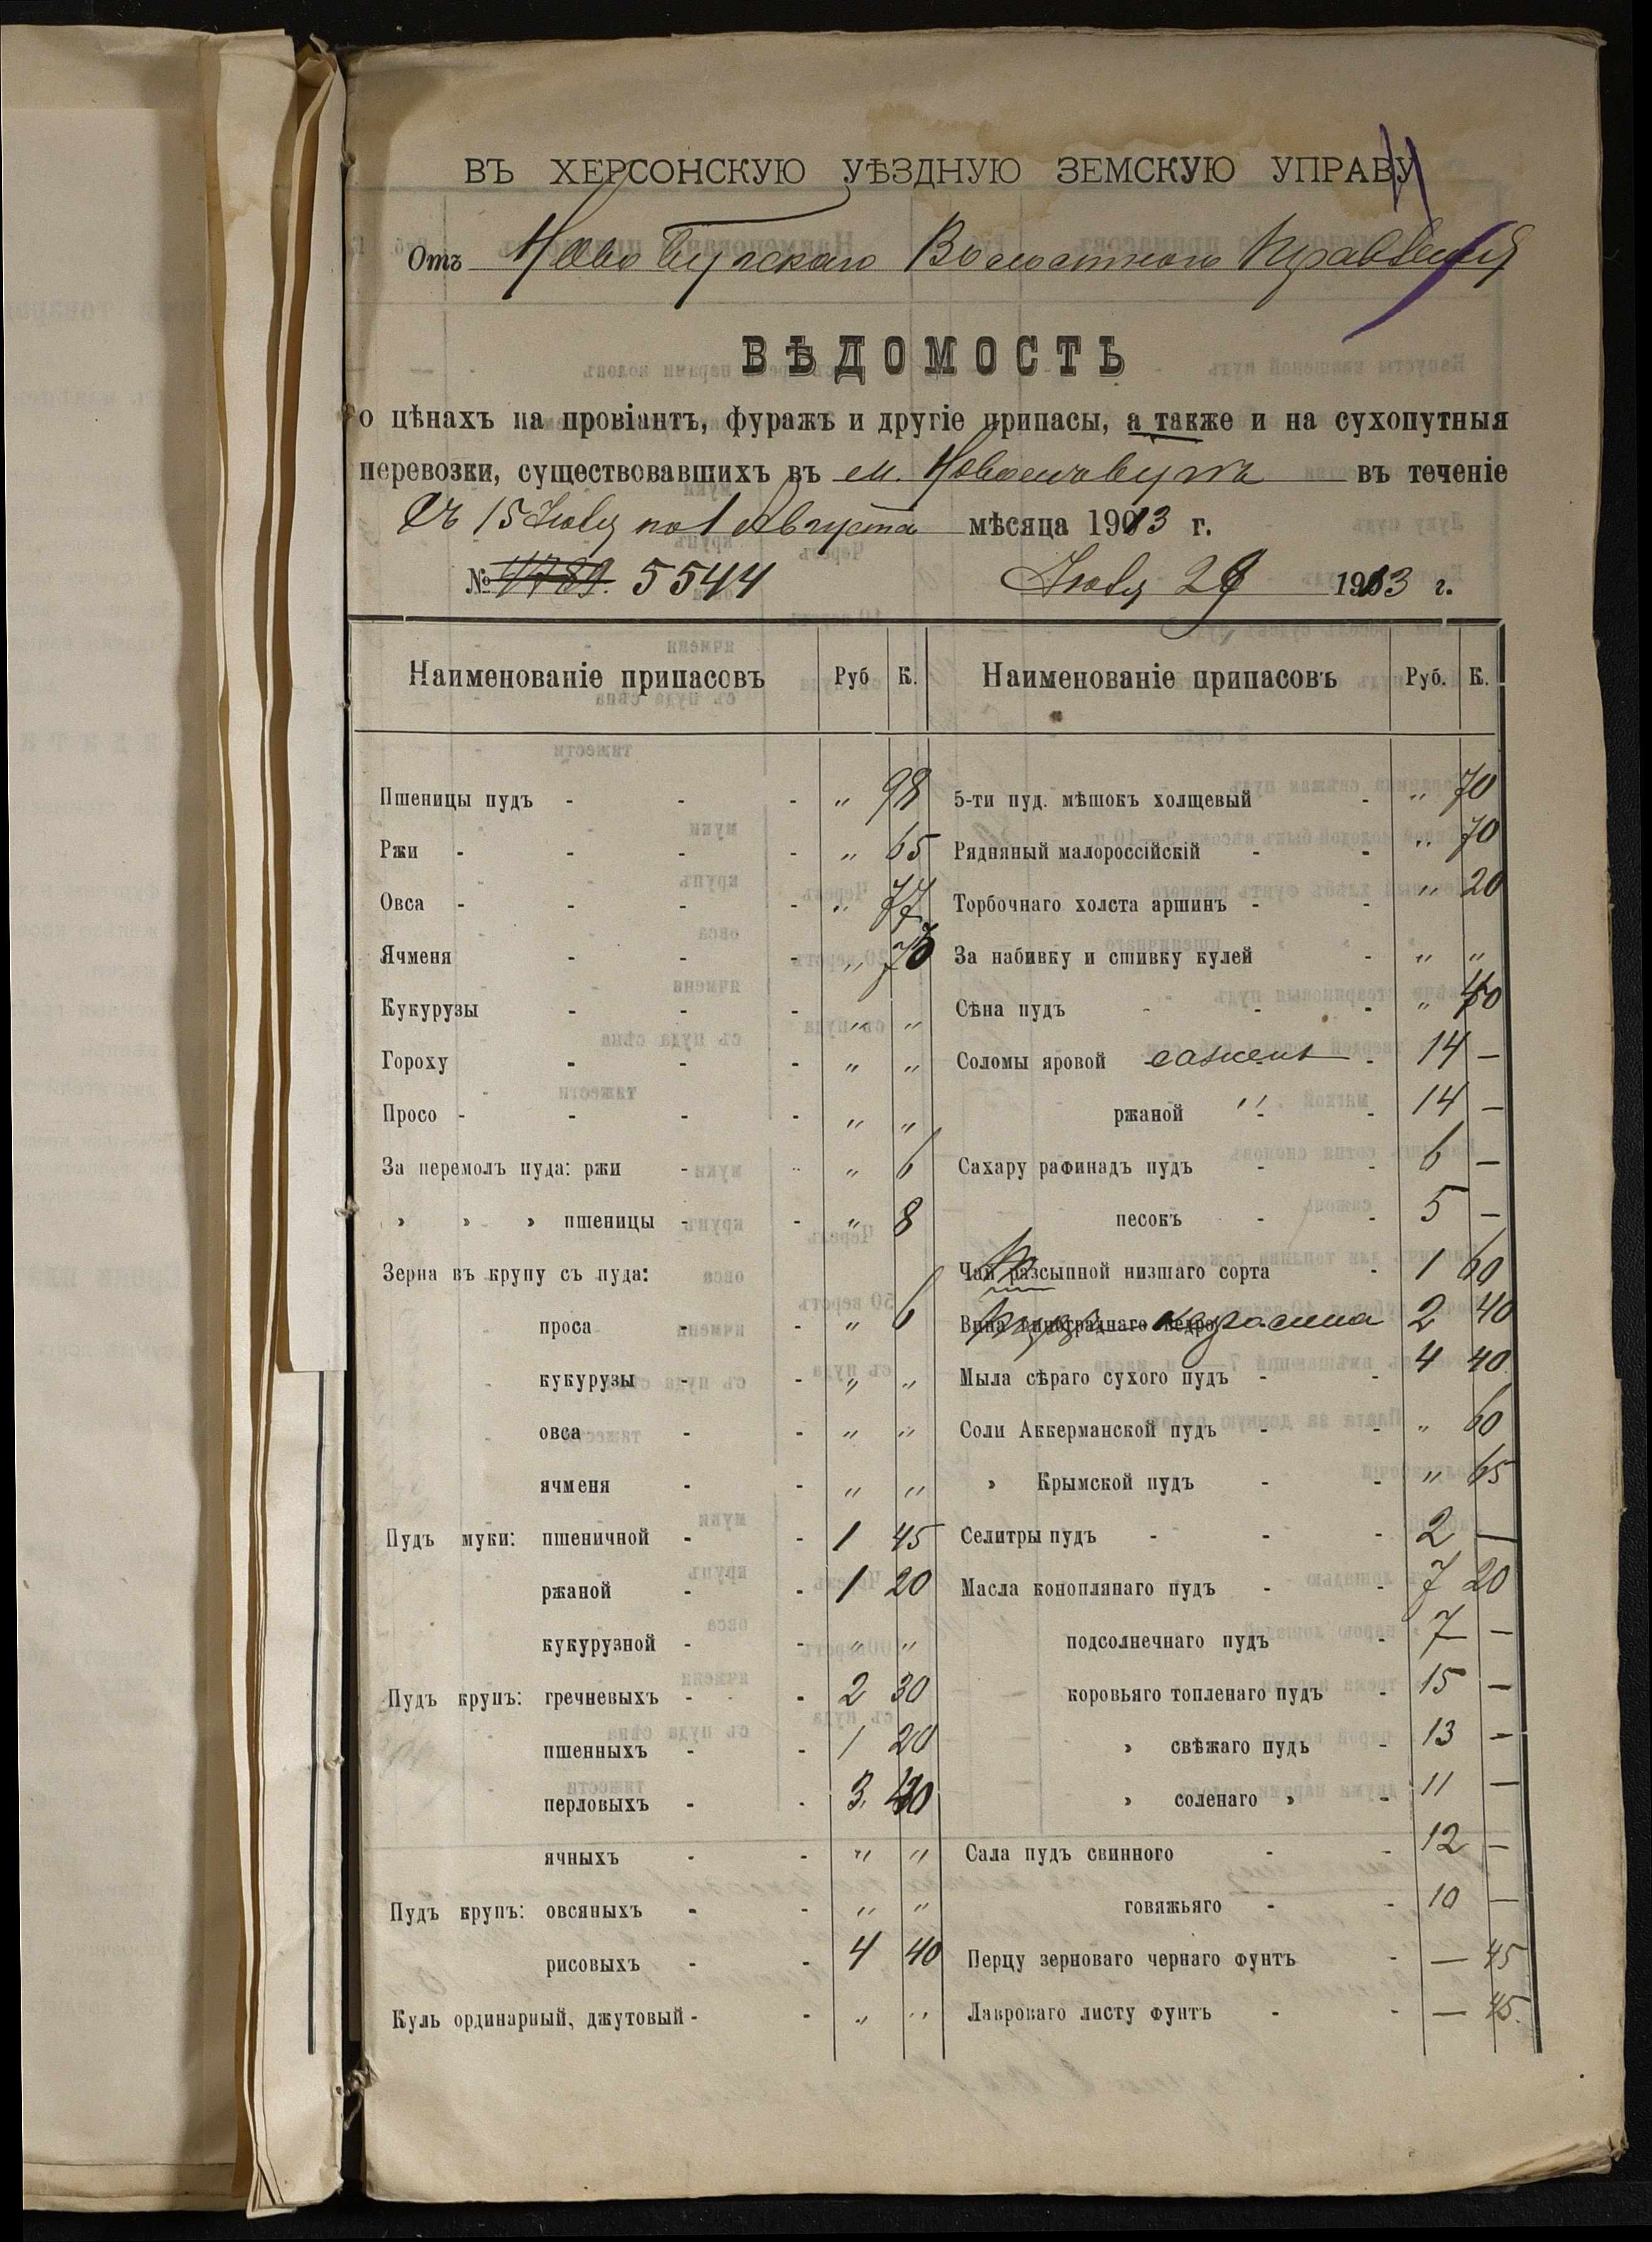 ВЪ ХЕРСОНСКУЮ УѢЗДНУЮ ЗЕМСКУЮ УПРАВУ
Отъ Ново Бугскаго Волостного Правленія
ВѢДОМОСТЬ
о цѣнахъ на провіантъ, фуражъ и другіе припасы, а также и на сухопутныя
перевозки, существовавшихъ въ м. Новомъ Бугѣ въ теченіе
Съ 15 Іюля по 1 Августа мѣсяца 1913 г.
№ 4789. 5544 Іюля 29 1913 г.
Наименованіе припасовъ Руб К. Наименованіе припасовъ Руб. К.
Пшеницы пудъ - - - „ 98 5-ти пуд. мѣшокъ холщевый - „ 70
Ржи - - - - „ 65 Рядняный малороссійскій - - „ 70
Овса - - - - „ 77 Торбочнаго холста аршинъ - - „ 20
Ячменя - - - „ За набивку и сшивку кулей - „ „
Кукурузы - - - „ „ Сѣна пудъ - - - „
Гороху - - - „ „ Соломы яровой сажень - 14 —
Просо - - - - „ „ ржаной „ - 14 —
За перемолъ пуда: ржи - - „ 6 Сахару рафинадъ пудъ - - 6 —
» » » пшеницы - - „ 8 песокъ - - 5 —
Зерна въ крупу съ пуда: Чай разсыпной низшаго сорта - 1 60
проса - - „ 6 Вина винограднаго ведро керосина 2 40
кукурузы - - „ „ Мыла сѣраго сухого пудъ - - 4 40
овса - - „ „ Соли Аккерманской пудъ - - „ 60
ячменя - - „ „ » Крымской пудъ - - „ 65
Пудъ муки: пшеничной - - 1 45 Селитры пудъ - - - 2 —
ржаной - - 1 20 Масла коноплянаго пудъ - - 7 20
кукурузной - - „ „ подсолнечнаго пудъ - 7 —
Пудъ крупъ: гречневыхъ - - 2 30 коровьяго топленаго пудъ - 15 —
пшенныхъ - - 1 20 » свѣжаго пудъ - 13 —
перловыхъ - - 3 » соленаго » - 11 —
ячныхъ - - „ „ Сала пудъ свинного - - 12 —
Пудъ крупъ: овсяныхъ - - „ „ говяжьяго - - 10 —
рисовыхъ - - 4 40 Перцу зерноваго чернаго фунтъ - — 45
Куль ординарный, джутовый - - „ „ Лавроваго листу фунтъ - - — 45.